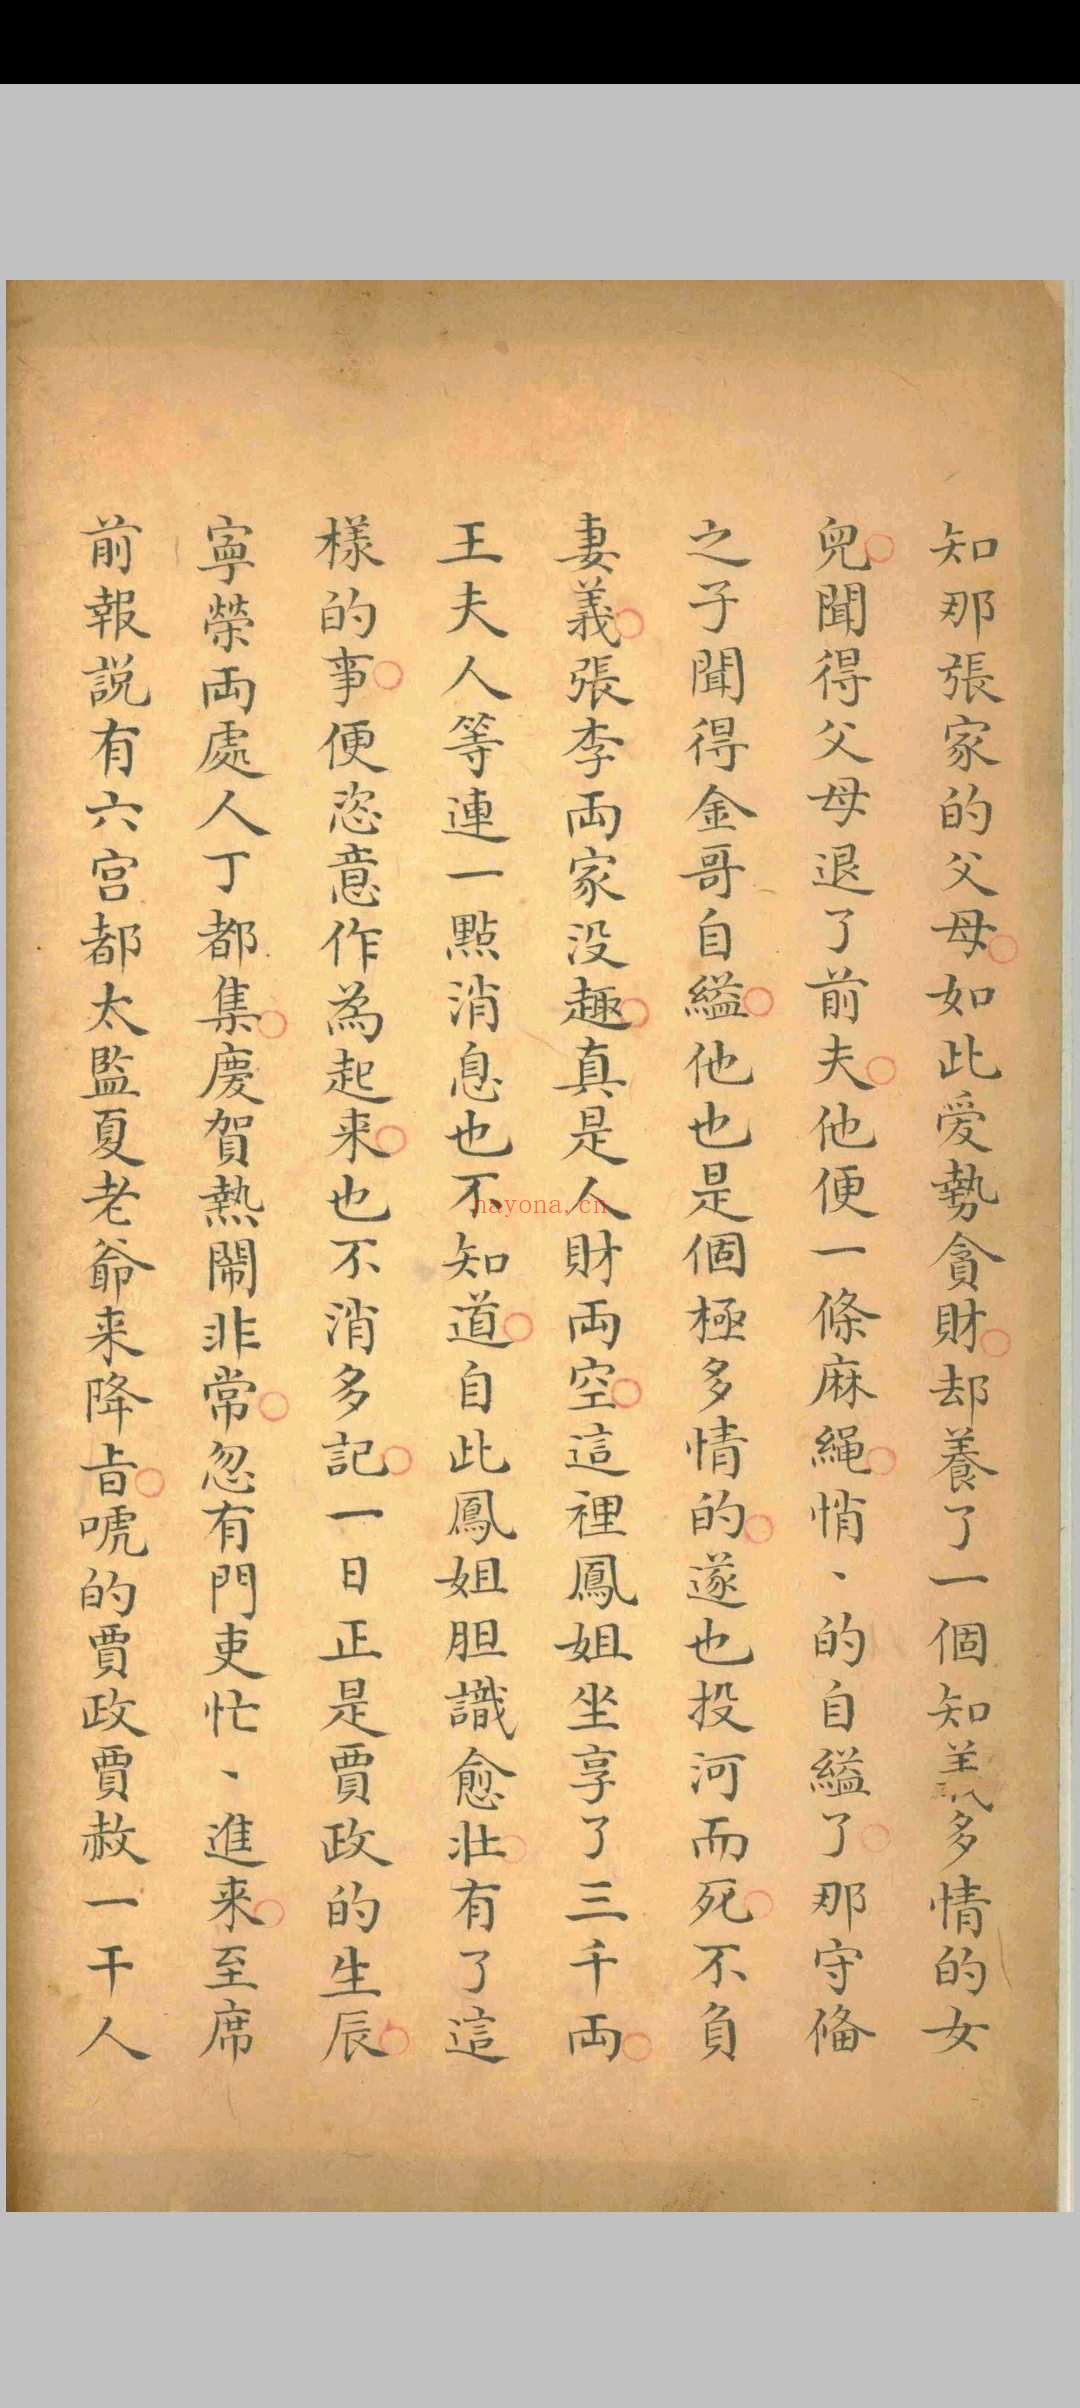 知那張家的父母如此爱勢貪財却養了一個知義多情的女
兒聞得父母退了前夫他便一條麻繩悄、的自縊了那守俻
之子聞得金哥自縊他也是個極多情的遂也投河而死不負
妻義張李両家没趣真是人財両空這裡鳳姐坐享了三千両
王夫人等連一點消息也不知道自此鳳姐胆識愈壮有了這
樣的事便恣意作為起来也不消多記一日正是賈政的生辰
寧榮両處人丁都集慶賀熱鬧非常忽有門吏忙、進来至席
前報説有六宫都太監夏老爺来降旨唬的賈政賈赦一干人
hayona.cn